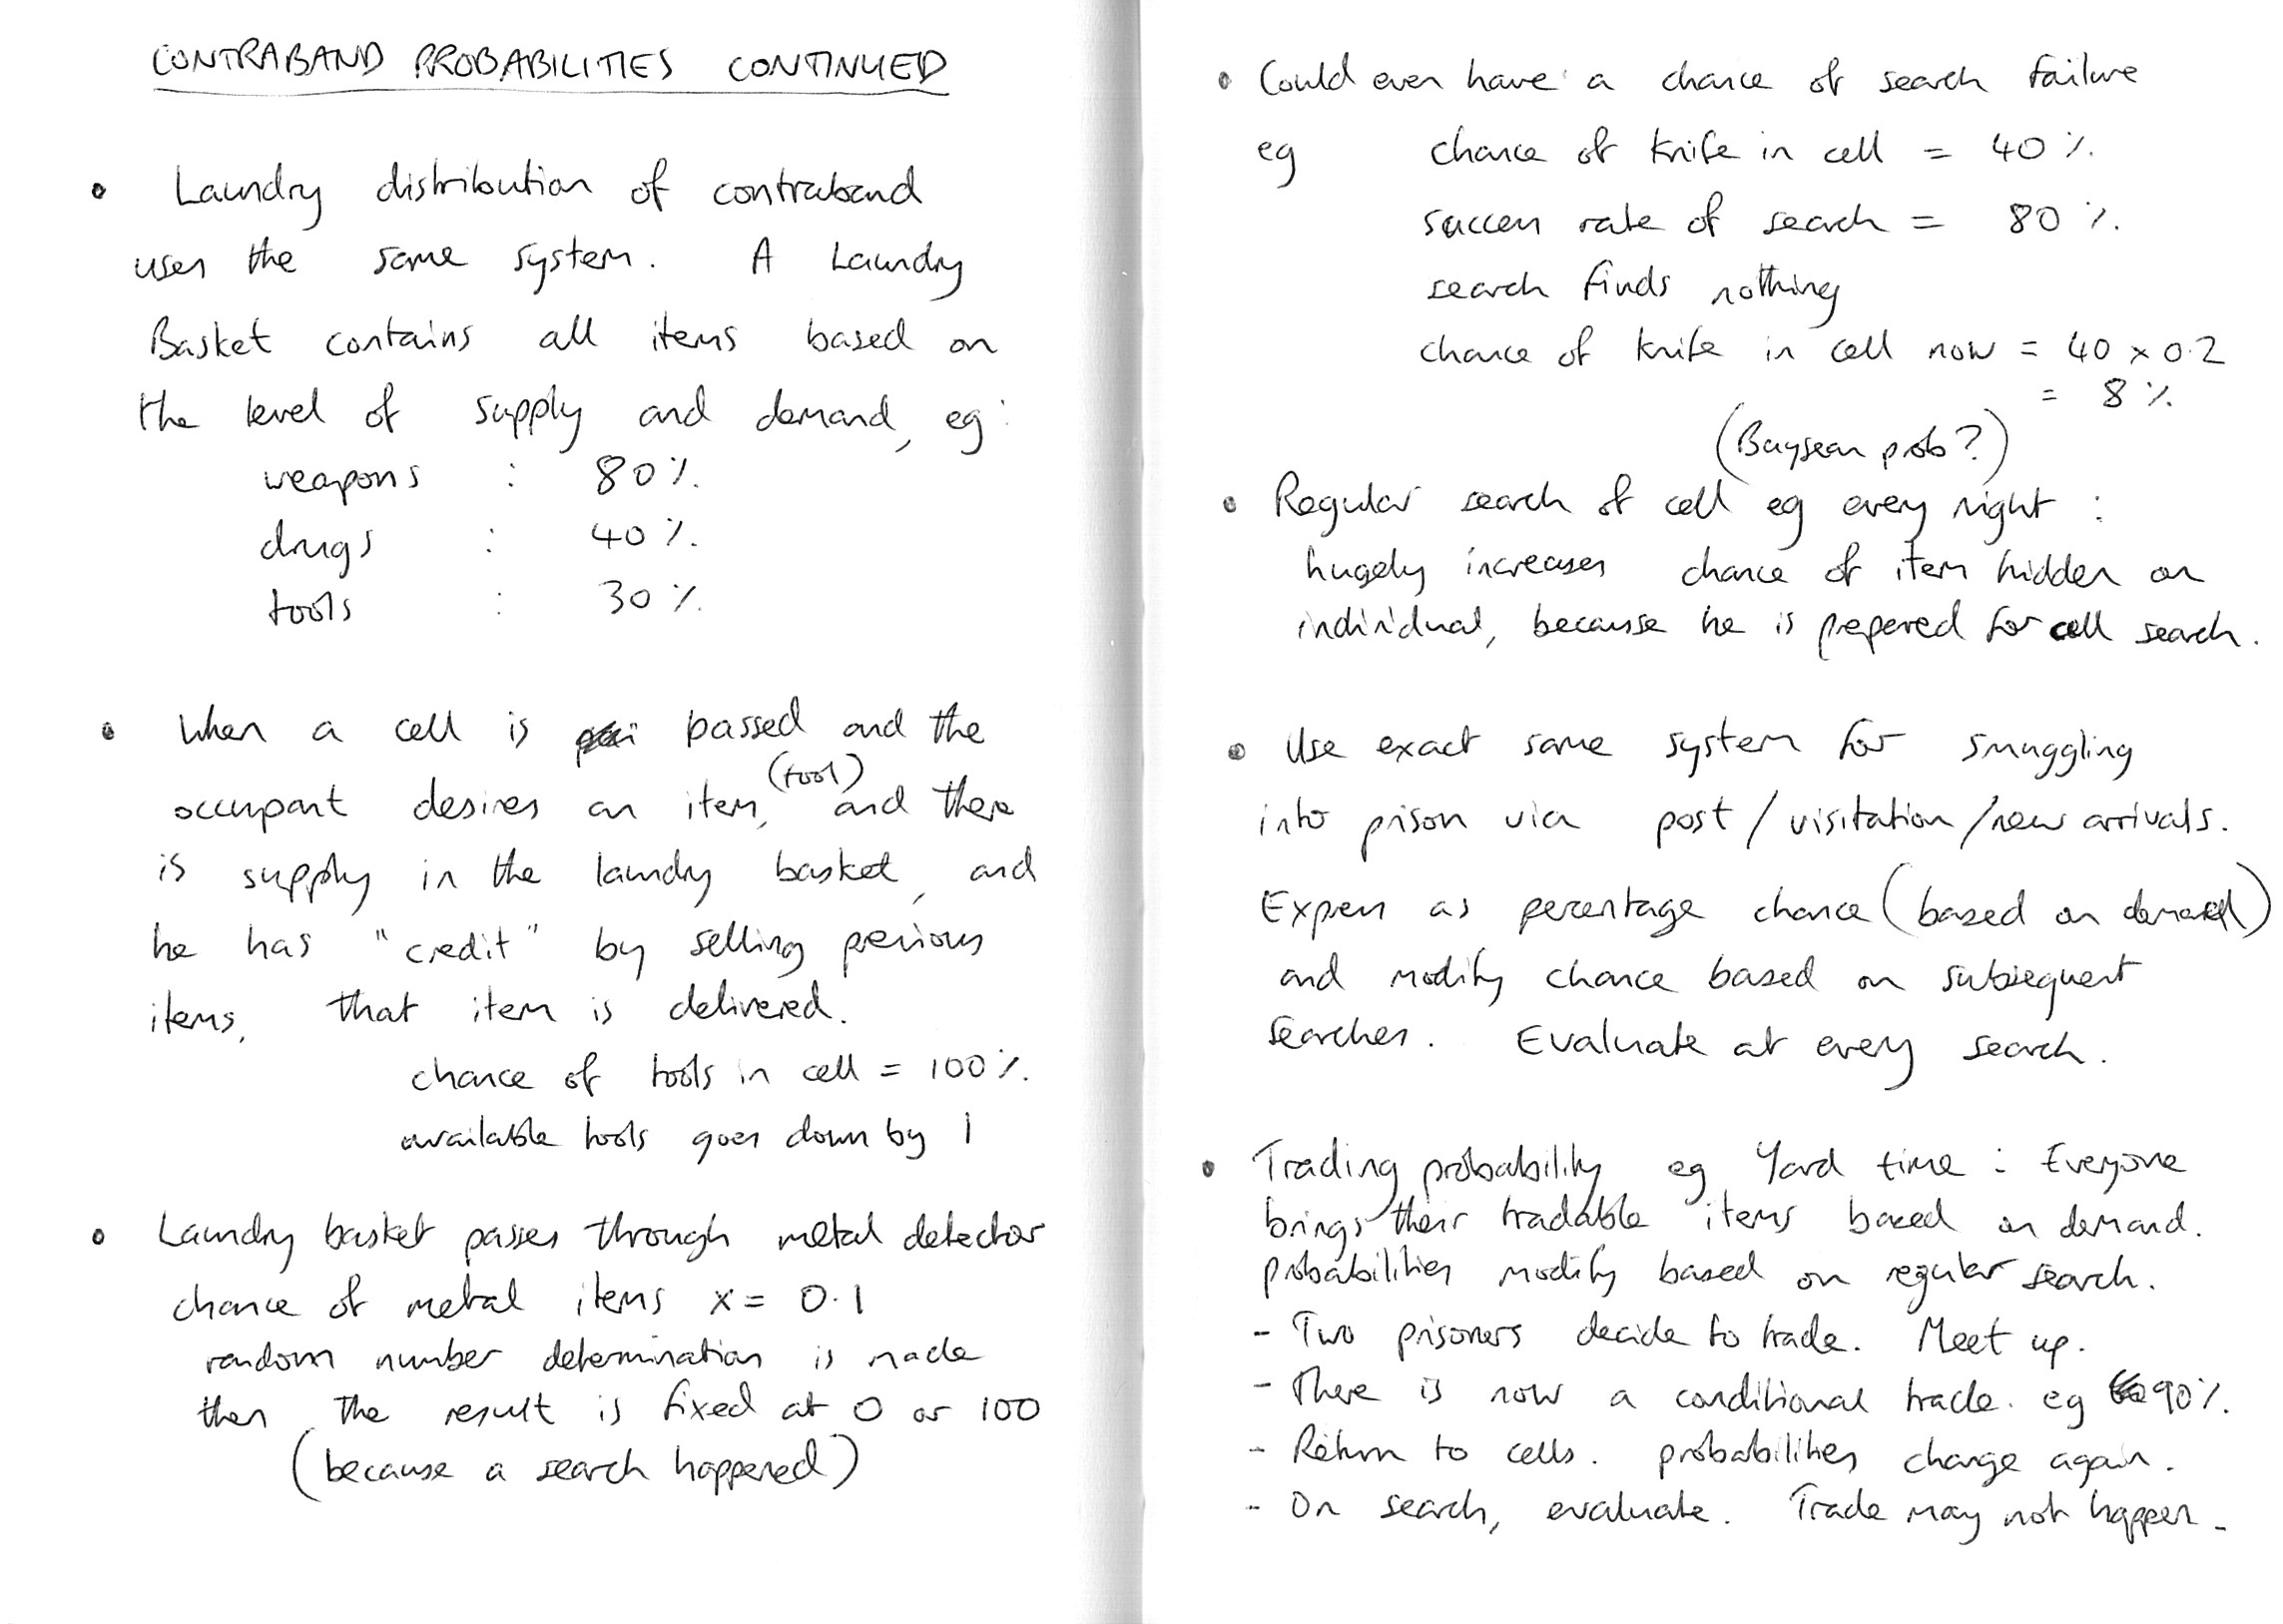 CONTRABAND PROBABILITIES CONTINUED
• Laundry distribution of contraband
uses the same system. A Laundry
Basket contains all items based on
the level of supply and demand, eg:
weapons : 80%
drugs : 40%
tools : 30%
• When a cell is passed and the
(tool)
occupant desires an item, and there
is supply in the laundry basket, and
he has "credit" by selling previous
items, that item is delivered.
chance of tools in cell = 100%
available tools goes down by 1
• Laundry basket passes through metal detector
chance of metal items x= 0.1
random number determination is made
then the result is fixed at 0 or 100
(because a search happened)
• Could even have a chance of search failure
eg chance of knife in cell = 40%
success rate of search = 80%
search finds nothing
chance of knife in cell now = 40 x 0.2
= 8%
(Baysean prob?)
• Regular search of cell eg every night :
hugely increases chance of item hidden on
individual, because he is prepered for cell search.
• Use exact same system for smuggling
into prison via post/visitation/new arrivals.
Express as percentage chance (based on demand)
and modify chance based on subsequent
searches. Evaluate at every search.
• Trading probability eg Yard time : Everyone
brings their tradable items based on demand.
probabilities modify based on regular search.
- Two prisoners decide to trade. Meet up.
- There is now a conditional trade. eg 90%.
- Return to cells. probabilities change again.
- On search, evaluate. Trade may not happen.